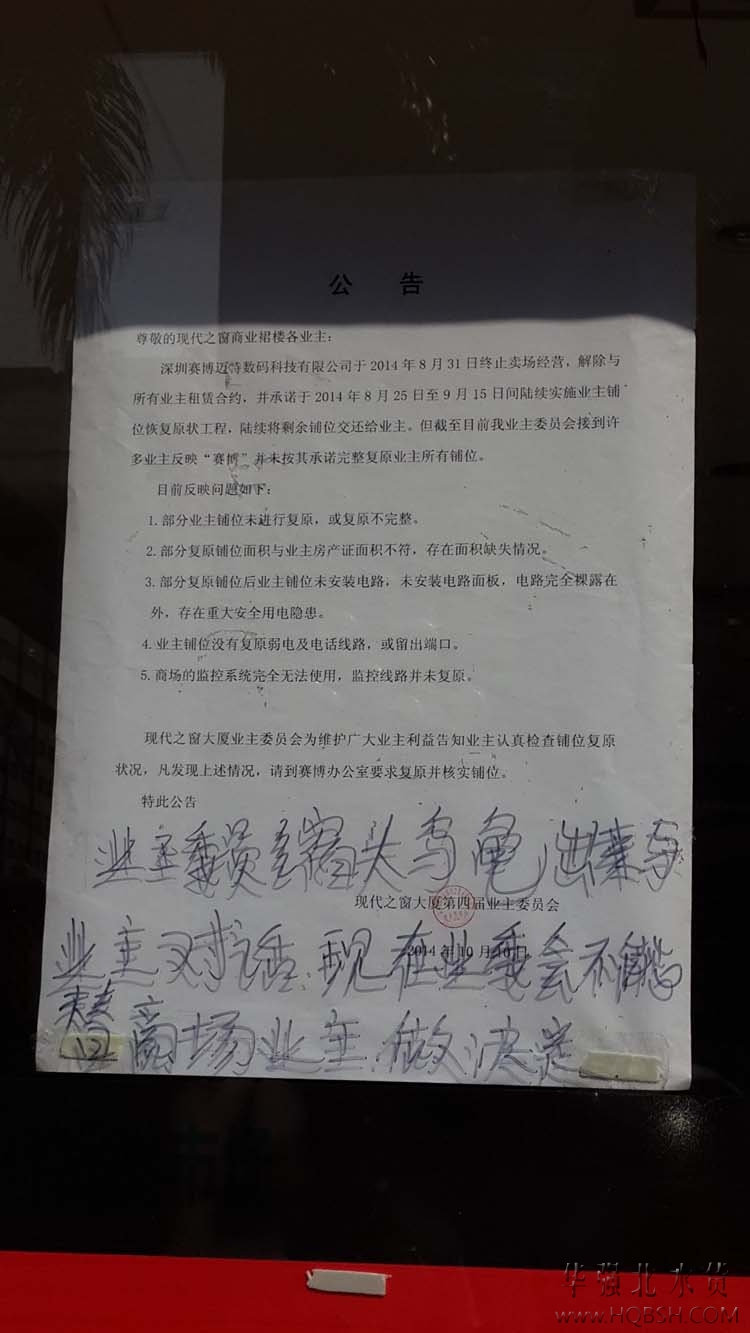 公 告
尊敬的现代之窗商业裙楼各业主:
深圳赛博迈特数码科技有限公司于 2014 年 8 月 31 日终止卖场经营，解除与
所有业主租赁合约，并承诺于 2014 年 8 月 25 日至 9 月 15 日间陆续实施业主铺
位恢复原状工程，陆续将剩余铺位交还给业主。但截至目前我业主委员会接到许
多业主反映“赛博”并未按其承诺完整复原业主所有铺位。
目前反映问题如下:
1.部分业主铺位未进行复原，或复原不完整。
2.部分复原铺位面积与业主房产证面积不符，存在面积缺失情况。
3.部分复原铺位后业主铺位未安装电路，未安装电路面板，电路完全裸露在
外，存在重大安全用电隐患。
4.业主铺位没有复原弱电及电话线路，或留出端口。
5.商场的监控系统完全无法使用，监控线路并未复原。
现代之窗大厦业主委员会为维护广大业主利益告知业主认真检查铺位复原
状况，凡发现上述情况，请到赛博办公室要求复原并核实铺位。
特此公告
业主委员 缩头乌龟 出来与
现代之窗大厦第四届业主委员会
2014 年 10 月
业主对话 现在业委会不能
替商场业主做决定
华强北水货
www.HQBSH.COM